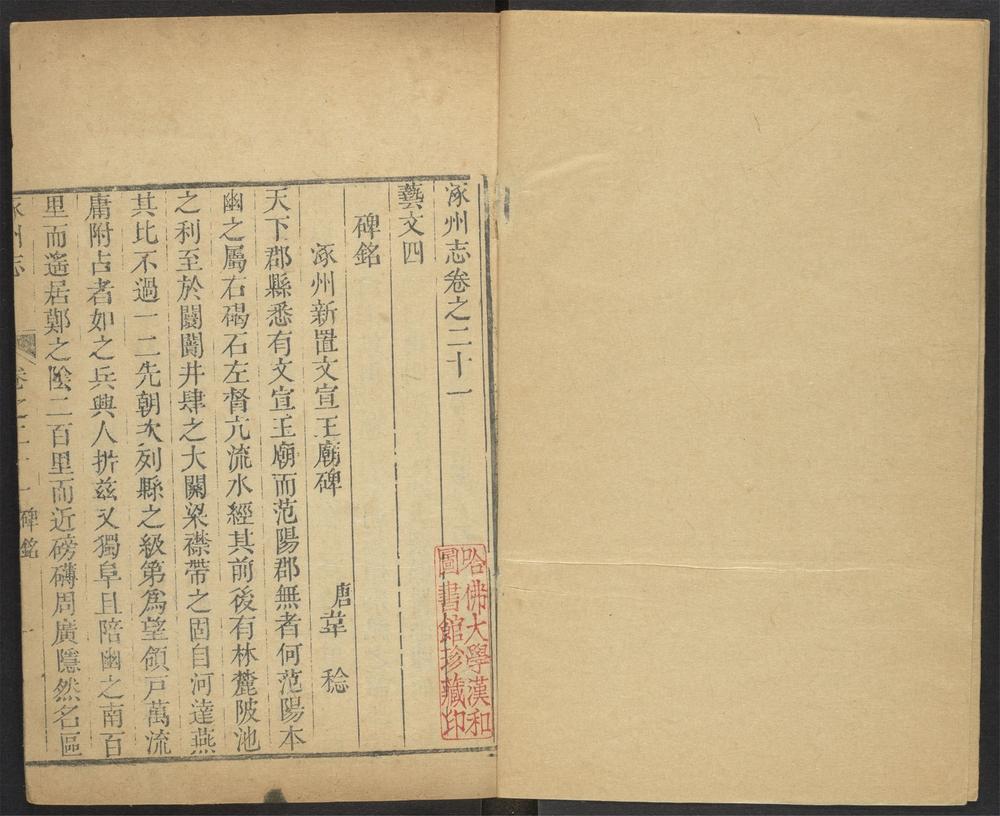 涿州志卷之二十一
藝文四
碑銘
涿州新置文宣王廟碑
唐韋稔
天下郡縣悉有文宣王廟而范陽郡無者何范陽本
幽之屬右碣石左督亢流水經其前後有林麓陂池
之利至於闤闠井肆之大關梁襟帶之固自河達燕
其比不過一二先朝次列縣之級第為望領戸萬流
庸附占者如之兵興人折茲又獨阜且陪幽之南百
里而遙居鄚之陰二百里而近磅礴周廣隱然名區
涿州志
卷之二十一
碑銘
一
哈佛大學漢和
圖書館珍藏印